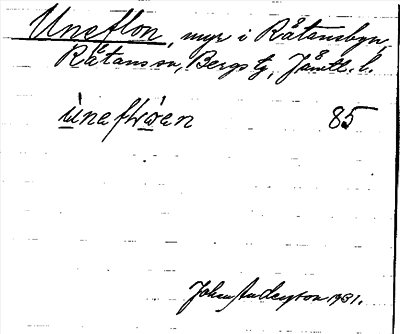 Uneflon, myr i Råtansbyn,
Råtans sn, Bergs tg, Jämtl. l.
ùneflωen 85
John Anderzon 1931.